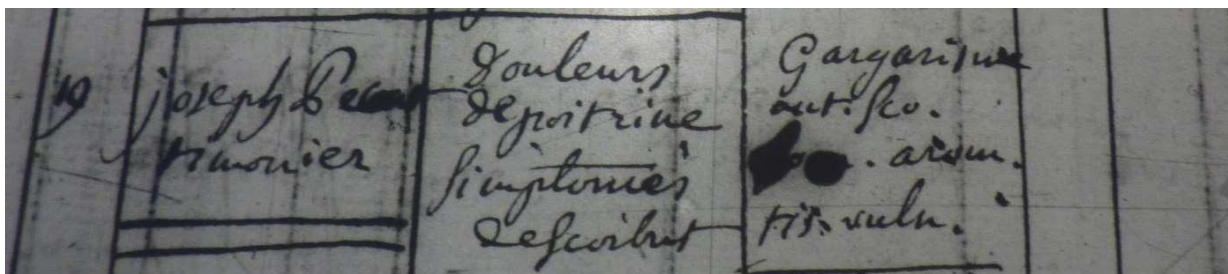 19
joseph
timonier
Douleurs
de poitrine
simptomes
de scorbut
Gargarisme
anti sco.
arom.
tis. vuln.